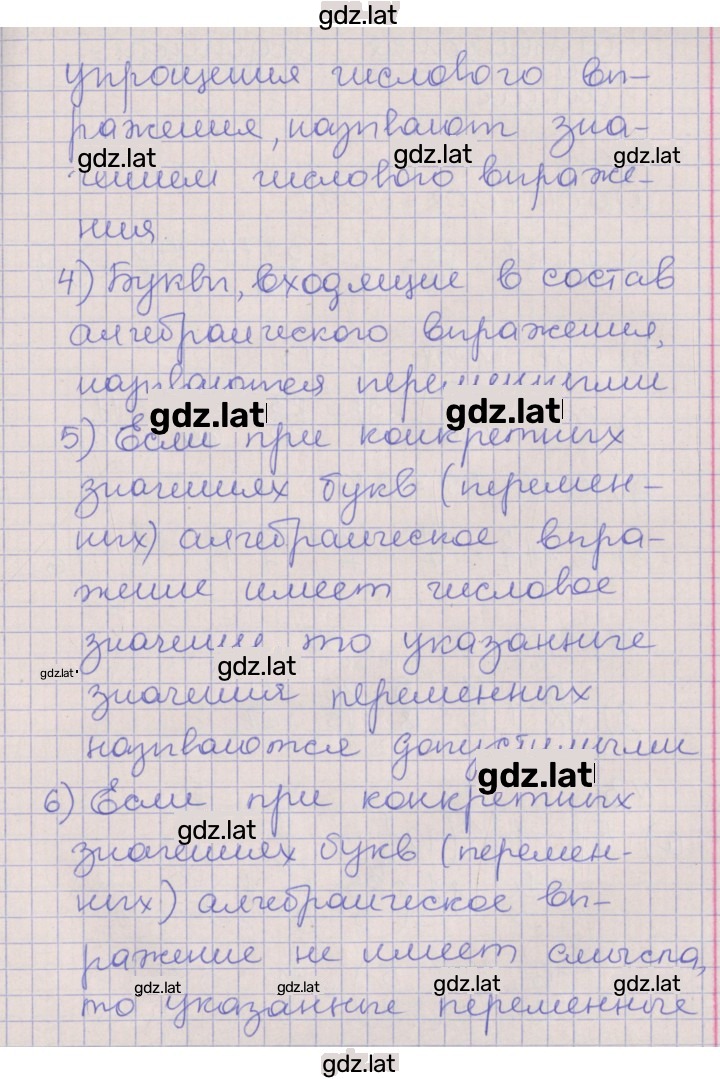 gdz.lat
упрощения числового вы-
ражения, называют зна-
gdz.lat gdz.lat gdz.lat
чением числового выраже-
ния.
4) Буквы, входящие в состав
алгебраического выражения,
называются переменными
gdz.lat gdz.lat
5) Если при конкретных
значениях букв (перемен-
ных) алгебраическое выра-
жение имеет числовое
значение то указанные
gdz.lat gdz.lat
значения переменных
называются допустимыми
gdz.lat
6) Если при конкретных
gdz.lat
значениях букв (перемен-
ных) алгебраическое вы-
ражение не имеет смысла,
gdz.lat gdz.lat gdz.lat gdz.lat
то указанные переменные
gdz.lat